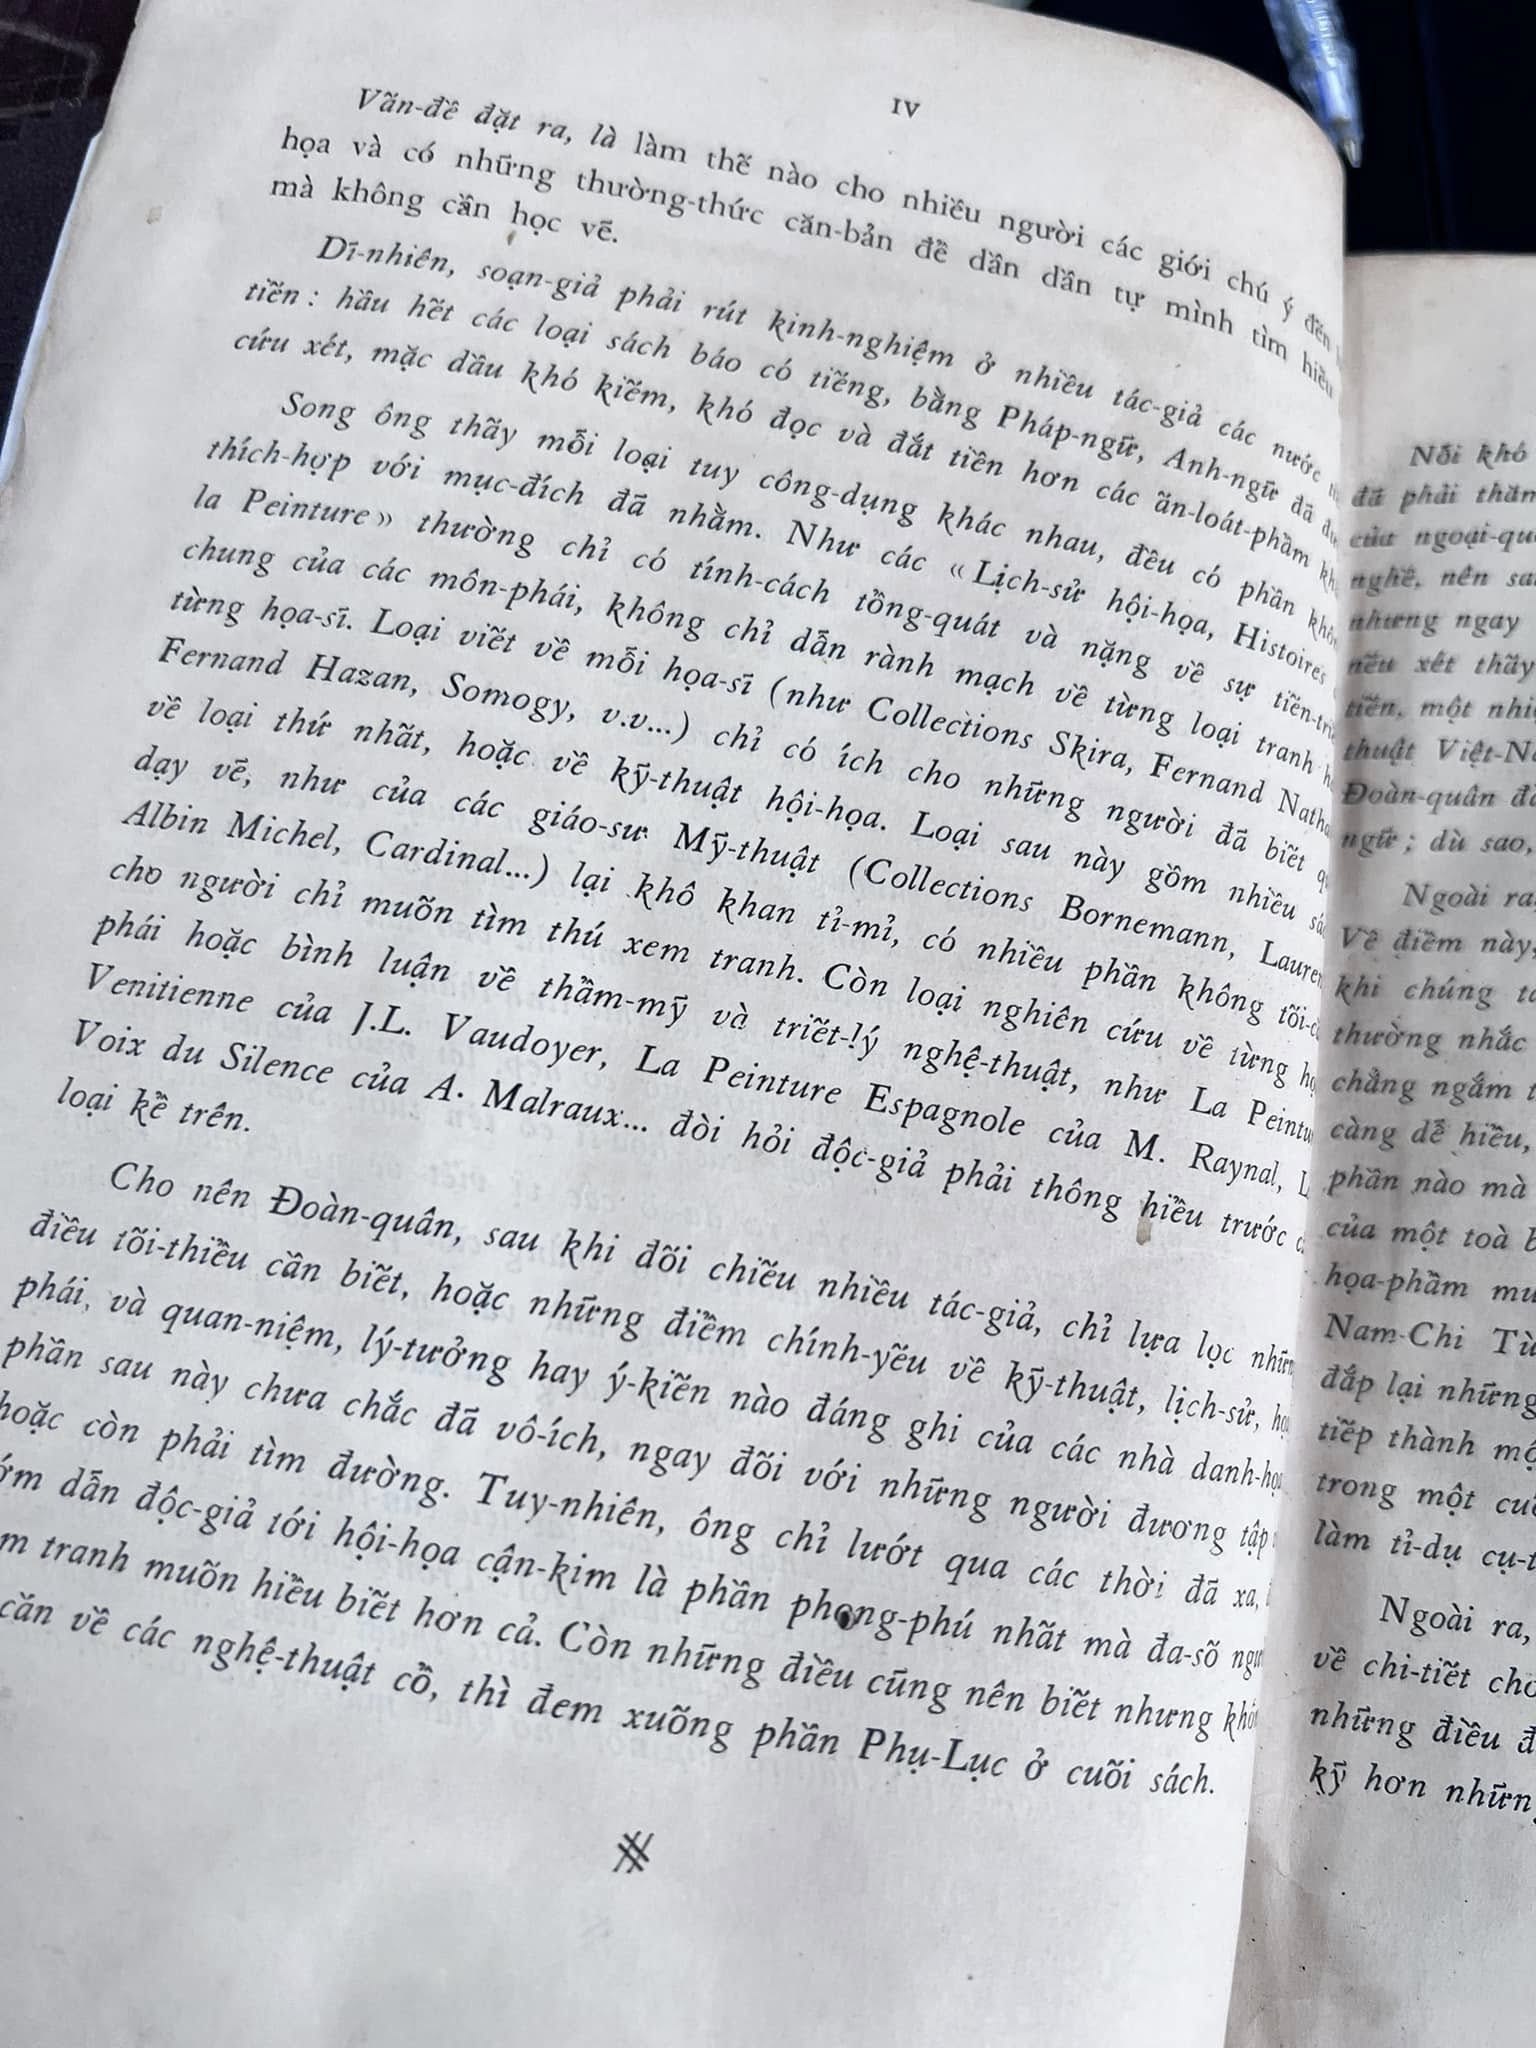 IV
Vấn-đề đặt ra, là làm thế nào cho nhiều người các giới chú ý đến
họa và có những thường-thức căn-bản để dần dần tự mình tìm hiểu
mà không cần học vẽ.
Dĩ-nhiên, soạn-giả phải rút kinh-nghiệm ở nhiều tác-giả các nước
tiến : hầu hết các loại sách báo có tiếng, bằng Pháp-ngữ, Anh-ngữ đã
cứu xét, mặc dầu khó kiếm, khó đọc và đắt tiền hơn các ấn-loát-phẩm
Song ông thấy mỗi loại tuy công-dụng khác nhau, đều có phần
thích-hợp với mục-đích đã nhằm. Như các « Lịch-sử hội-họa, Histoires
la Peinture» thường chỉ có tính-cách tổng-quát và nặng về sự
chung của các môn-phái, không chỉ dẫn rành mạch về từng loại tranh
từng họa-sĩ. Loại viết về mỗi họa-sĩ (như Collections Skira, Fernand
Fernand Hazan, Somogy, v.v...) chỉ có ích cho những người đã biết
về loại thứ nhất, hoặc về kỹ-thuật hội-họa. Loại sau này gồm nhiều
dạy vẽ, như của các giáo-sư Mỹ-thuật (Collections Bornemann,
Albin Michel, Cardinal...) lại khô khan tỉ-mỉ, có nhiều phần không
cho người chỉ muốn tìm thú xem tranh. Còn loại nghiên cứu về từng
phái hoặc bình luận về thẩm-mỹ và triết-lý nghệ-thuật, như La
Venitienne của J.L. Vaudoyer, La Peinture Espagnole của M. Raynal,
Voix du Silence của A. Malraux... đòi hỏi độc-giả phải thông hiểu trước
loại kể trên.
Cho nên Đoàn-quân, sau khi đối chiếu nhiều tác-giả, chỉ lựa lọc
điều tối-thiểu cần biết, hoặc những điểm chính-yếu về kỹ-thuật, lịch-sử,
phái, và quan-niệm, lý-tưởng hay ý-kiến nào đáng ghi của các nhà
phần sau này chưa chắc đã vô-ích, ngay đối với những người đương tập
hoặc còn phải tìm đường. Tuy-nhiên, ông chỉ lướt qua các thời đã xa,
dẫn độc-giả tới hội-họa cận-kim là phần phong-phú nhất mà đa-số
tranh muốn hiểu biết hơn cả. Còn những điều cũng nên biết nhưng
cần về các nghệ-thuật cổ, thì đem xuống phần Phụ-Lục ở cuối sách.
Nỗi khó
đã phải
của
nghề, nên
nhưng ngay
nếu xét thấy
tiến, một
thuật
Đoàn-quân
ngữ ; dù sao,
Ngoài ra,
Về điểm này,
khi chúng
thường nhắc
chẳng ngắm
càng dễ hiểu,
phần nào mà
của một toà
họa-phẩm
Nam-Chi
đắp lại những
tiếp thành
trong một
làm tỉ-dụ
Ngoài ra,
về chi-tiết
những điều
kỹ hơn